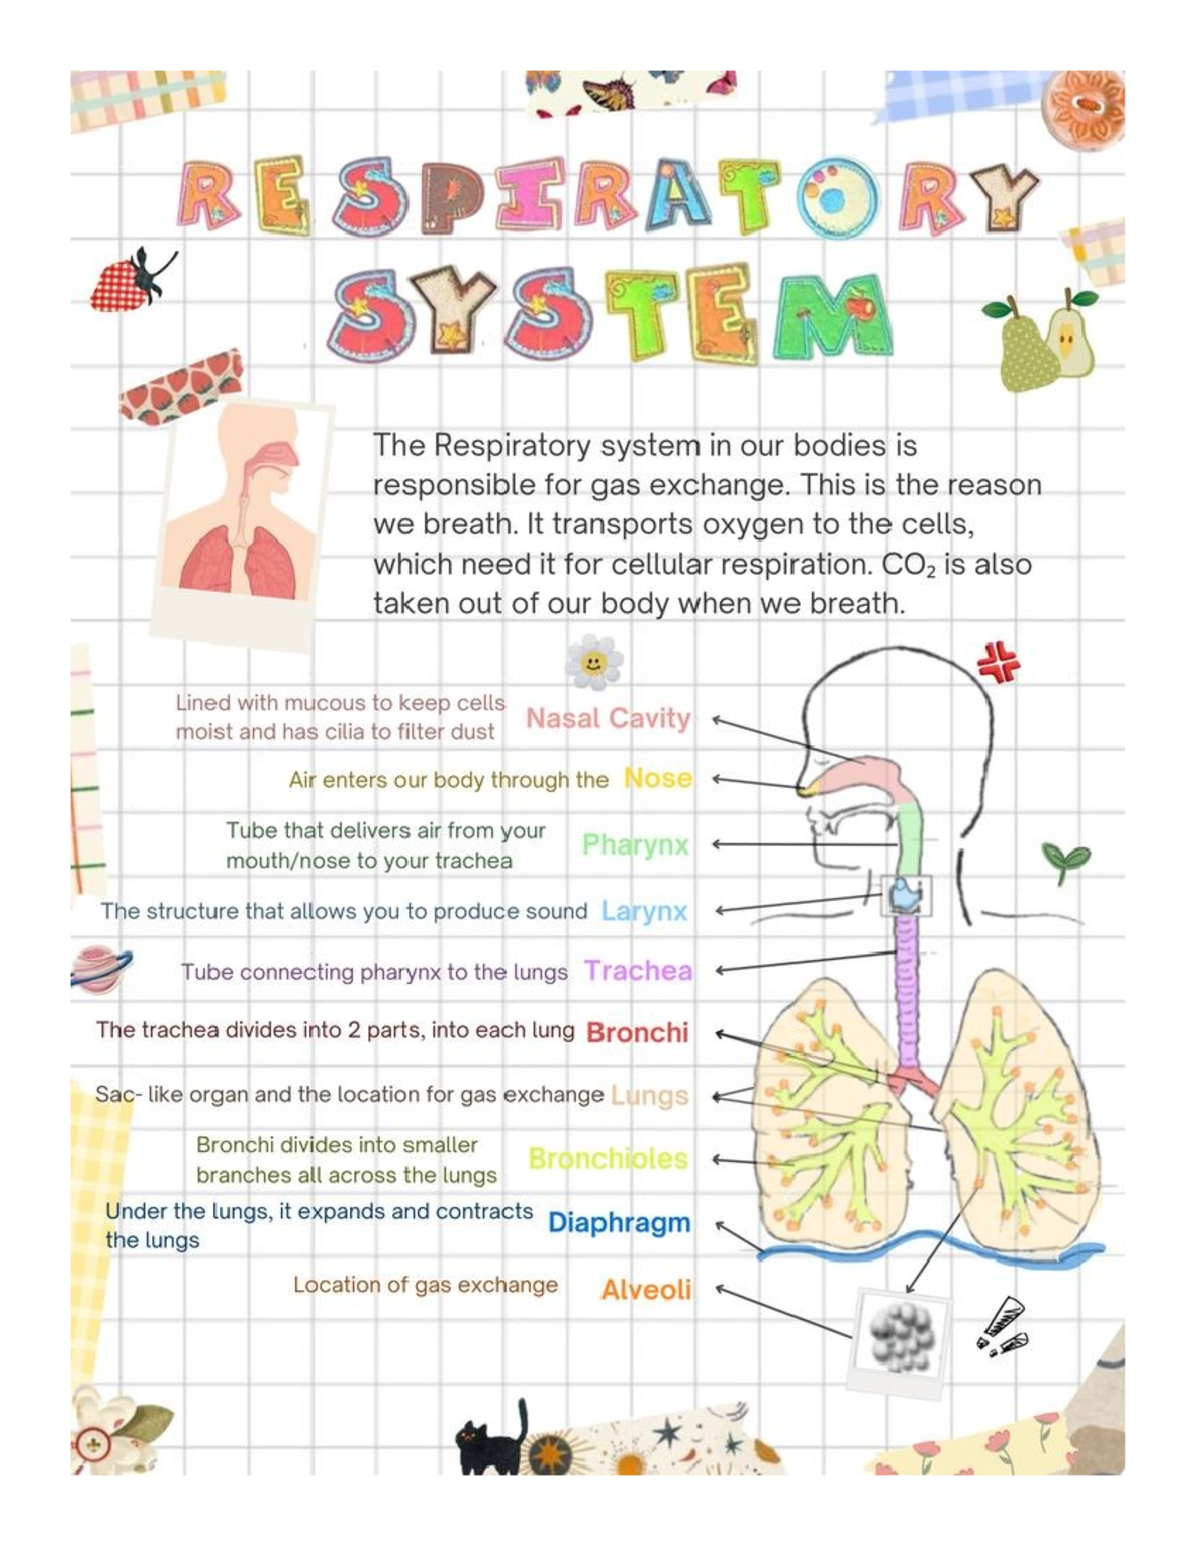 RESPIRATORY
SYSTEM
The Respiratory system in our bodies is
responsible for gas exchange. This is the reason
we breath. It transports oxygen to the cells,
which need it for cellular respiration. CO₂ is also
taken out of our body when we breath.
Lined with mucous to keep cells
moist and has cilia to filter dust
Nasal Cavity
Air enters our body through the Nose
Tube that delivers air from your
mouth/nose to your trachea
Pharynx
The structure that allows you to produce sound Larynx
Tube connecting pharynx to the lungs Trachea
The trachea divides into 2 parts, into each lung Bronchi
Sac- like organ and the location for gas exchange Lungs
Bronchi divides into smaller
branches all across the lungs
Bronchioles
Under the lungs, it expands and contracts
the lungs
Diaphragm
Location of gas exchange Alveoli